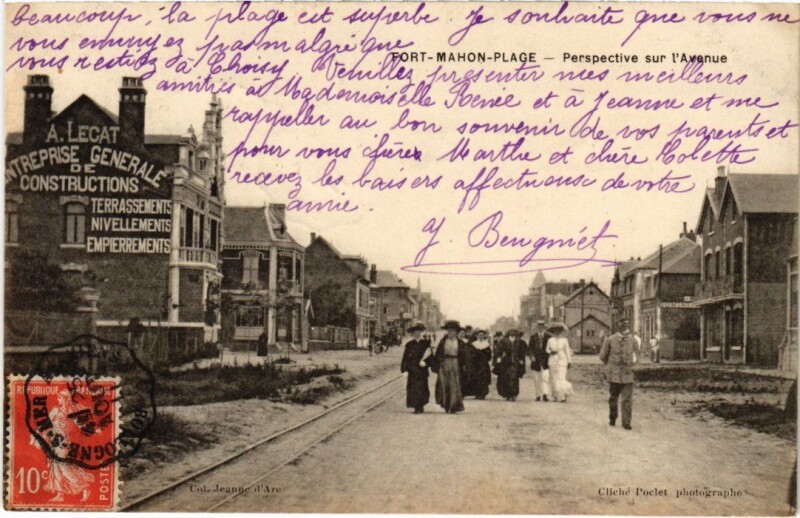 beaucoup, la plage est superbe. Je souhaite que vous ne
vous ennuyez pas malgré que
FORT-MAHON-PLAGE — Perspective sur l'Avenue
vous restiez à Choisy Veuillez presenter mes meilleurs
amitiés à Mademoiselle Renée et à Jeanne et me
rappeller au bon souvenir de vos parents et
pour vous chère Marthe et chère Colette
recevez les baisers affectueux de votre
amie.
J. Beugniet
A. LEGAT
ENTREPRISE GÉNÉRALE
DE
CONSTRUCTIONS
TERRASSEMENTS
NIVELLEMENTS
EMPIERREMENTS
REPUBLIQUE FRANÇAISE
10c
POSTES
BOULOGNE-S-MER
Col. Jeanne d'Arc
Cliché Poclet photographe